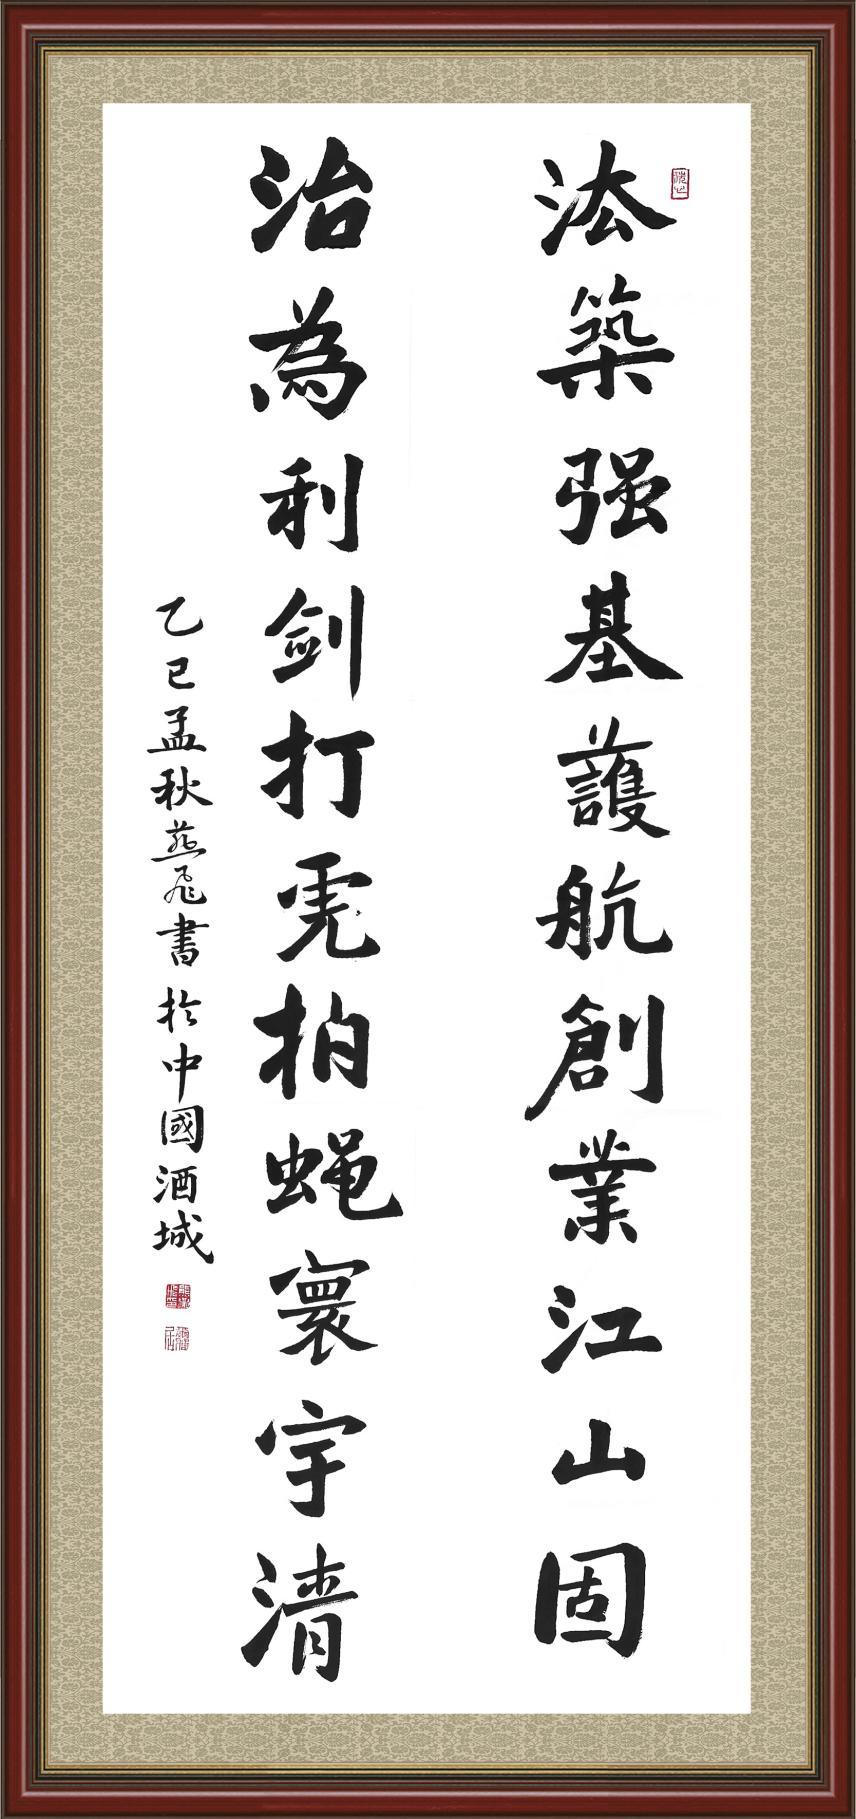 法築强基護航創業江山固
治為利剑打虎拍蝇寰宇清
乙巳孟秋燕飛書於中國酒城